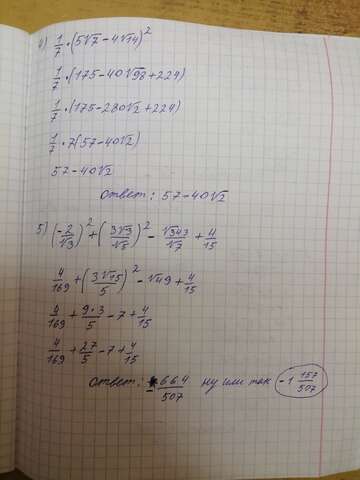 4) 1/7 · (5√7 - 4√14)²
1/7 · (175 - 40√98 + 224)
1/7 · (175 - 280√2 + 224)
1/7 · 7(57 - 40√2)
57 - 40√2
ответ: 57 - 40√2
5) (-2/√3)² + (3√3/√5)² - √343/√7 + 4/15
4/169 + (3√15/5)² - √49 + 4/15
4/169 + 9·3/5 - 7 + 4/15
4/169 + 27/5 - 7 + 4/15
ответ: -664/507 ну или так -1 157/507